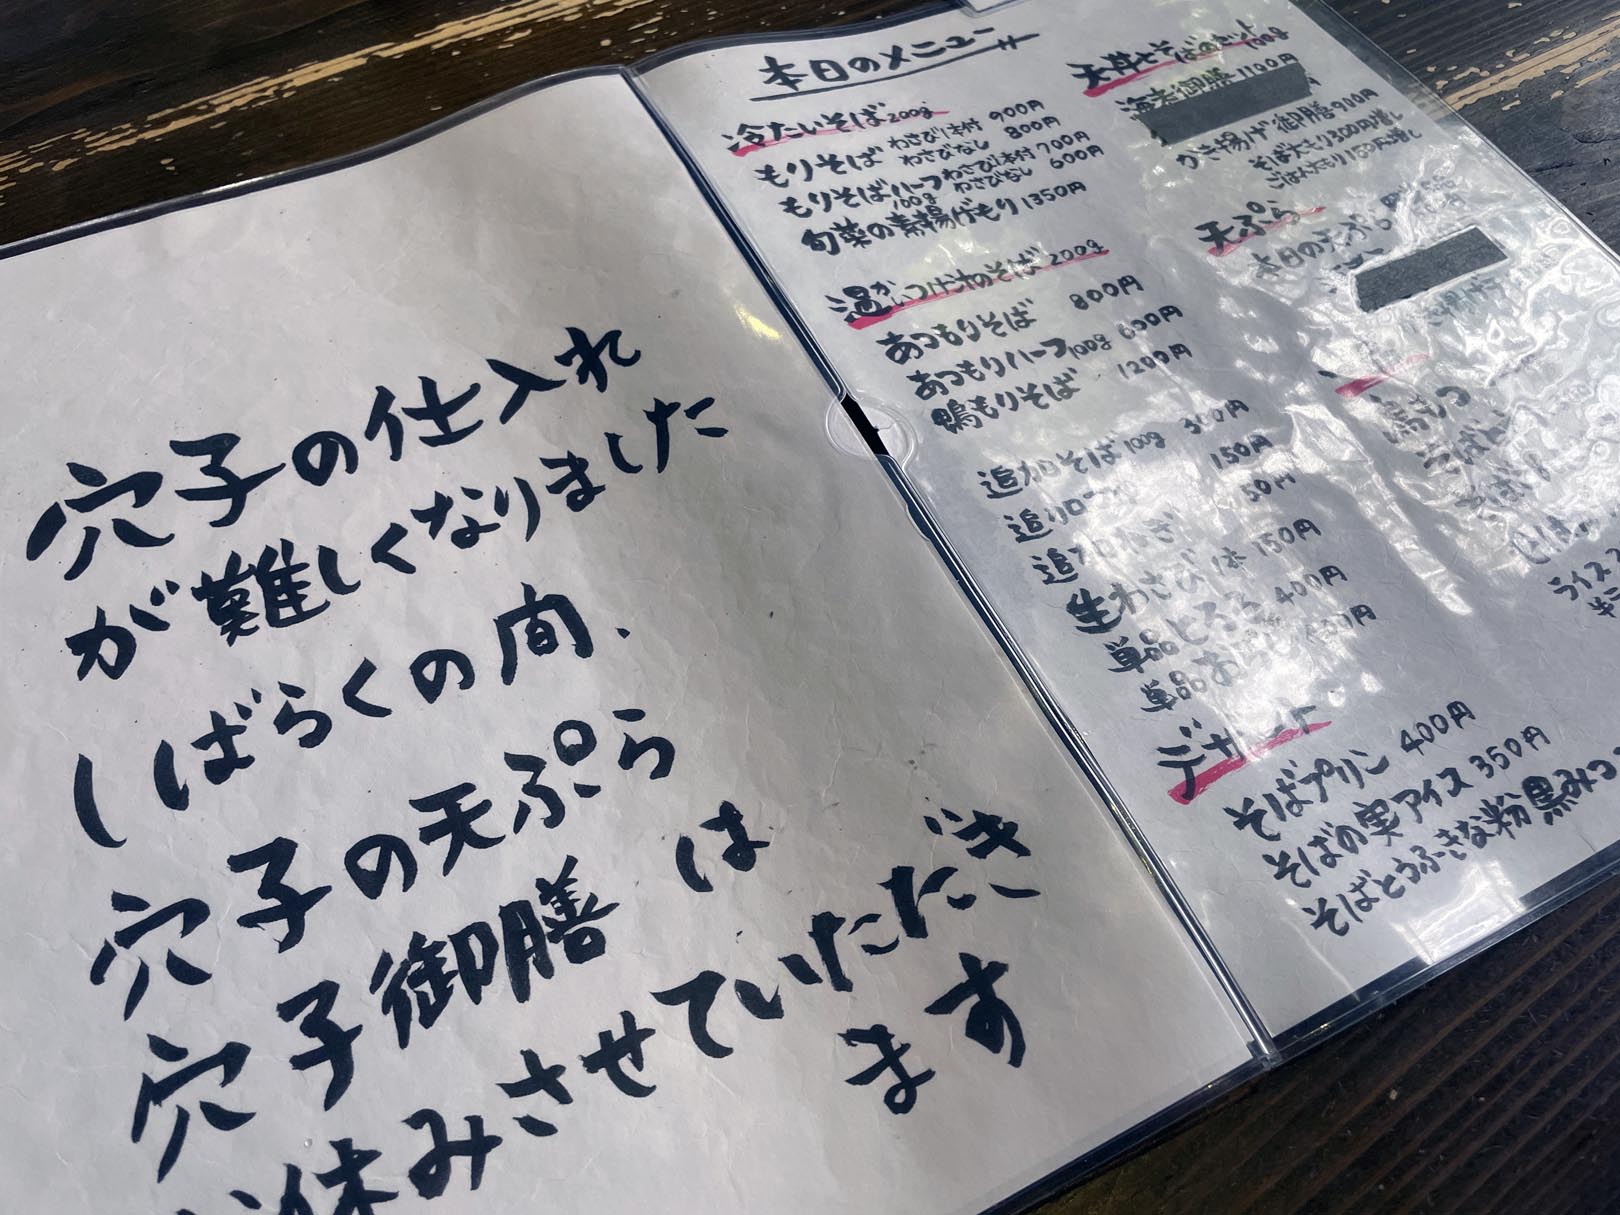 穴子の仕入れ
が難しくなりました
しばらくの間、
穴子の天ぷら
穴子御膳は
お休みさせていただき
ます
本日のメニュー
冷たいそば200g
もりそば わさび1本付 900円
わさびなし 800円
もりそばハーフ わさび1本付 700円
100g わさびなし 600円
旬菜の素揚げもり 1350円
温かいつけ汁のそば 200g
あつもりそば 800円
あつもりハーフ100g 600円
鴨もりそば 1200円
追加そば100g 300円
150円
50円
生わさび1本 150円
単品とろろ 400円
単品お
デザート
そばプリン 400円
そばの実アイス 350円
そばとうふきな粉黒みつ
天丼とそばのセット
100g
海老御膳 1100円
かき揚げ御膳 900円
そば大もり300円増し
ごはん大もり150円増し
天ぷら
本日の天ぷら
鴨もつ
ライス